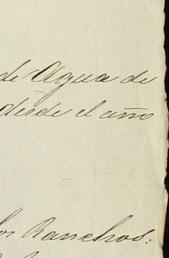 de Agua de
desde el año
los Ranchos: